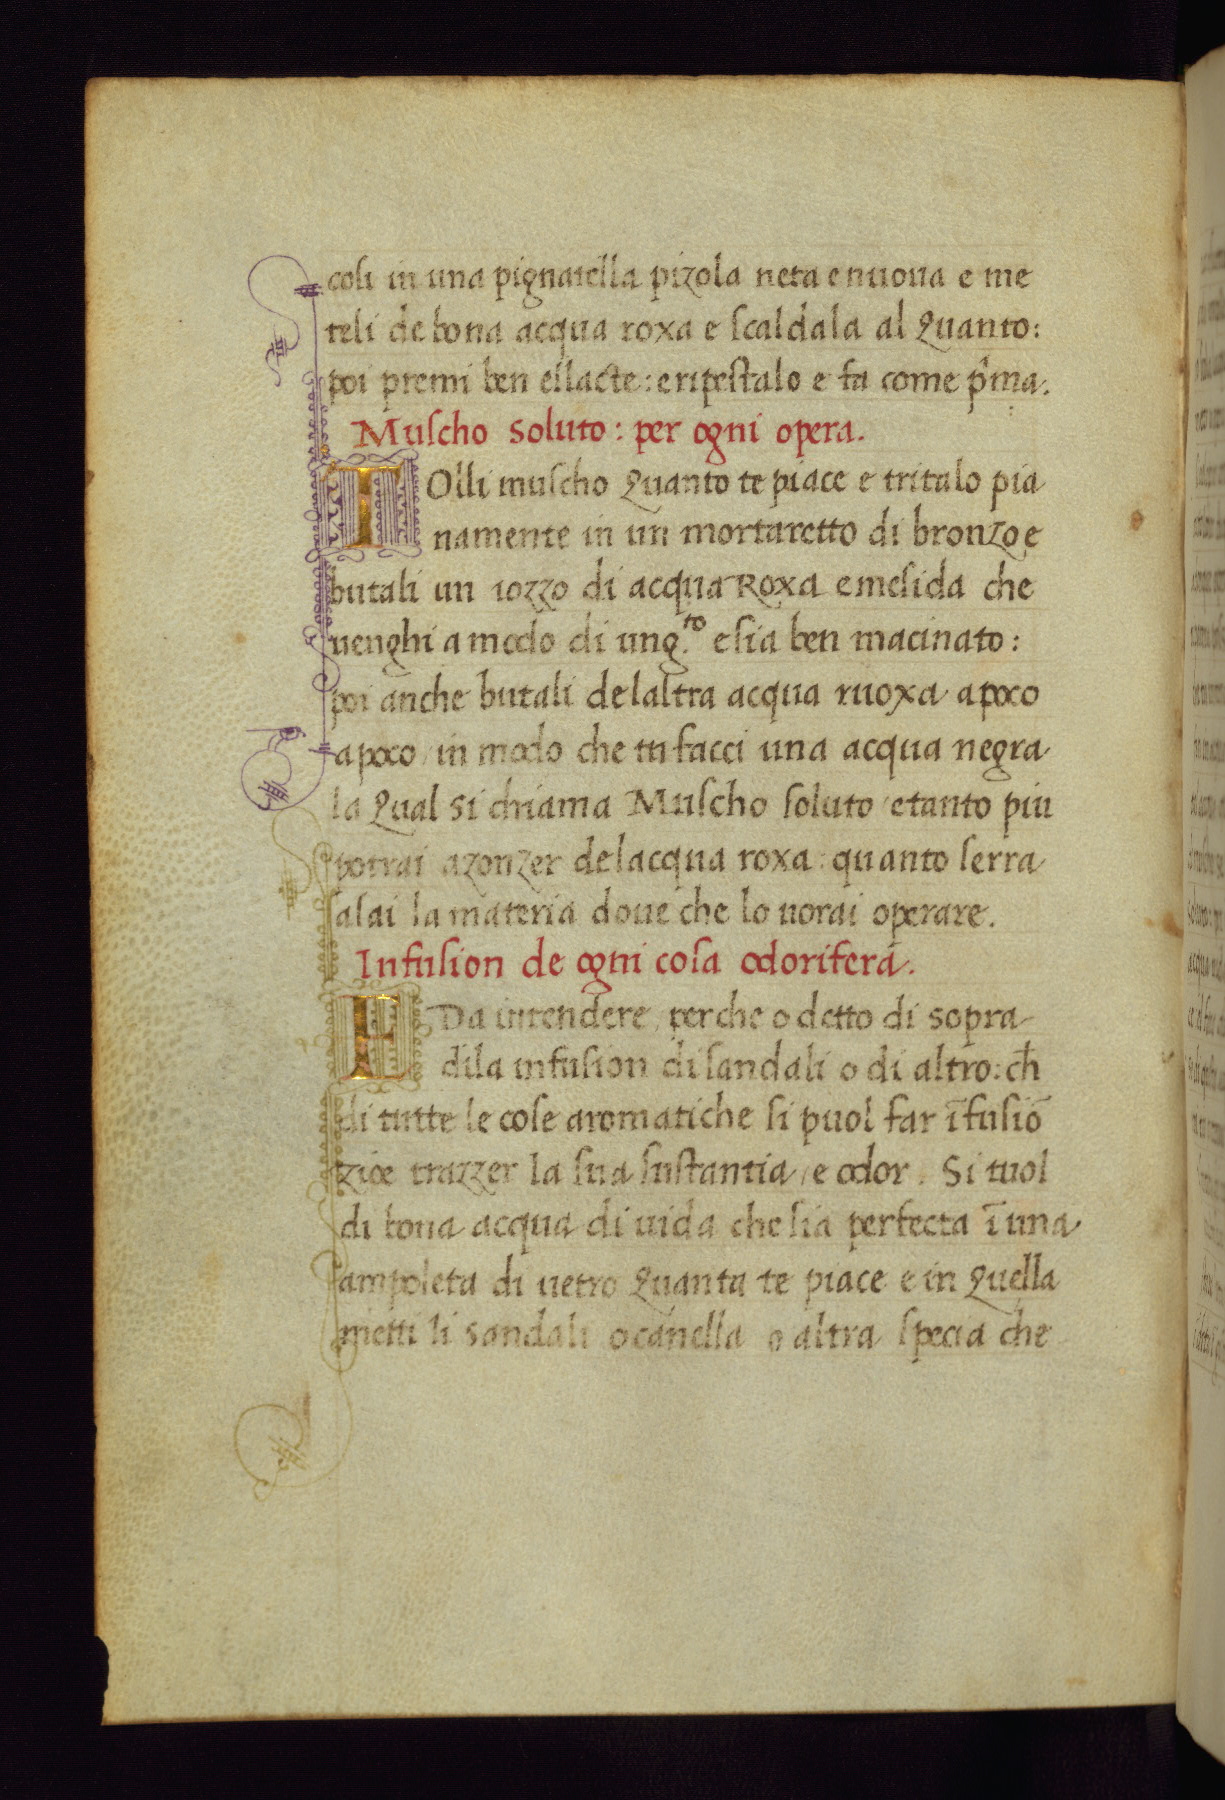 coli in una pignatella pizola neta e nuoua e me
teli de bona acqua roxa e scaldala al Quanto:
poi premi ben el lacte: e ripestalo e fa come p̃ma.
Muscho soluto: per ogni opera.
TOlli muscho Quanto te piace e tritalo pia
namente in un mortaretto di bronzo e
butali un iozzo di acqua Roxa e mesida che
uenghi a modo di ung.to e sia ben macinato:
poi anche butali de laltra acqua ruoxa a poco
a poco / in modo che tu facci una acqua negra
la Qual si chiama Muscho soluto / e tanto piu
potrai azonzer de lacqua roxa: quanto serra
asai la materia doue che lo uorai operare.
Infusion de ogni cosa odorifera.
EDa intendere, perche o detto di sopra
di la infusion di sandali o di altro: ch̃
di tutte le cose aromatiche si puol far ĩfusiõ
zioe trazzer la sua sustantia / e odor. Si tuol
di bona acqua di uida che sia perfecta ĩ una
ampoleta di uetro Quanta te piace e in Quella
metti li sandali o canella o altra specia che